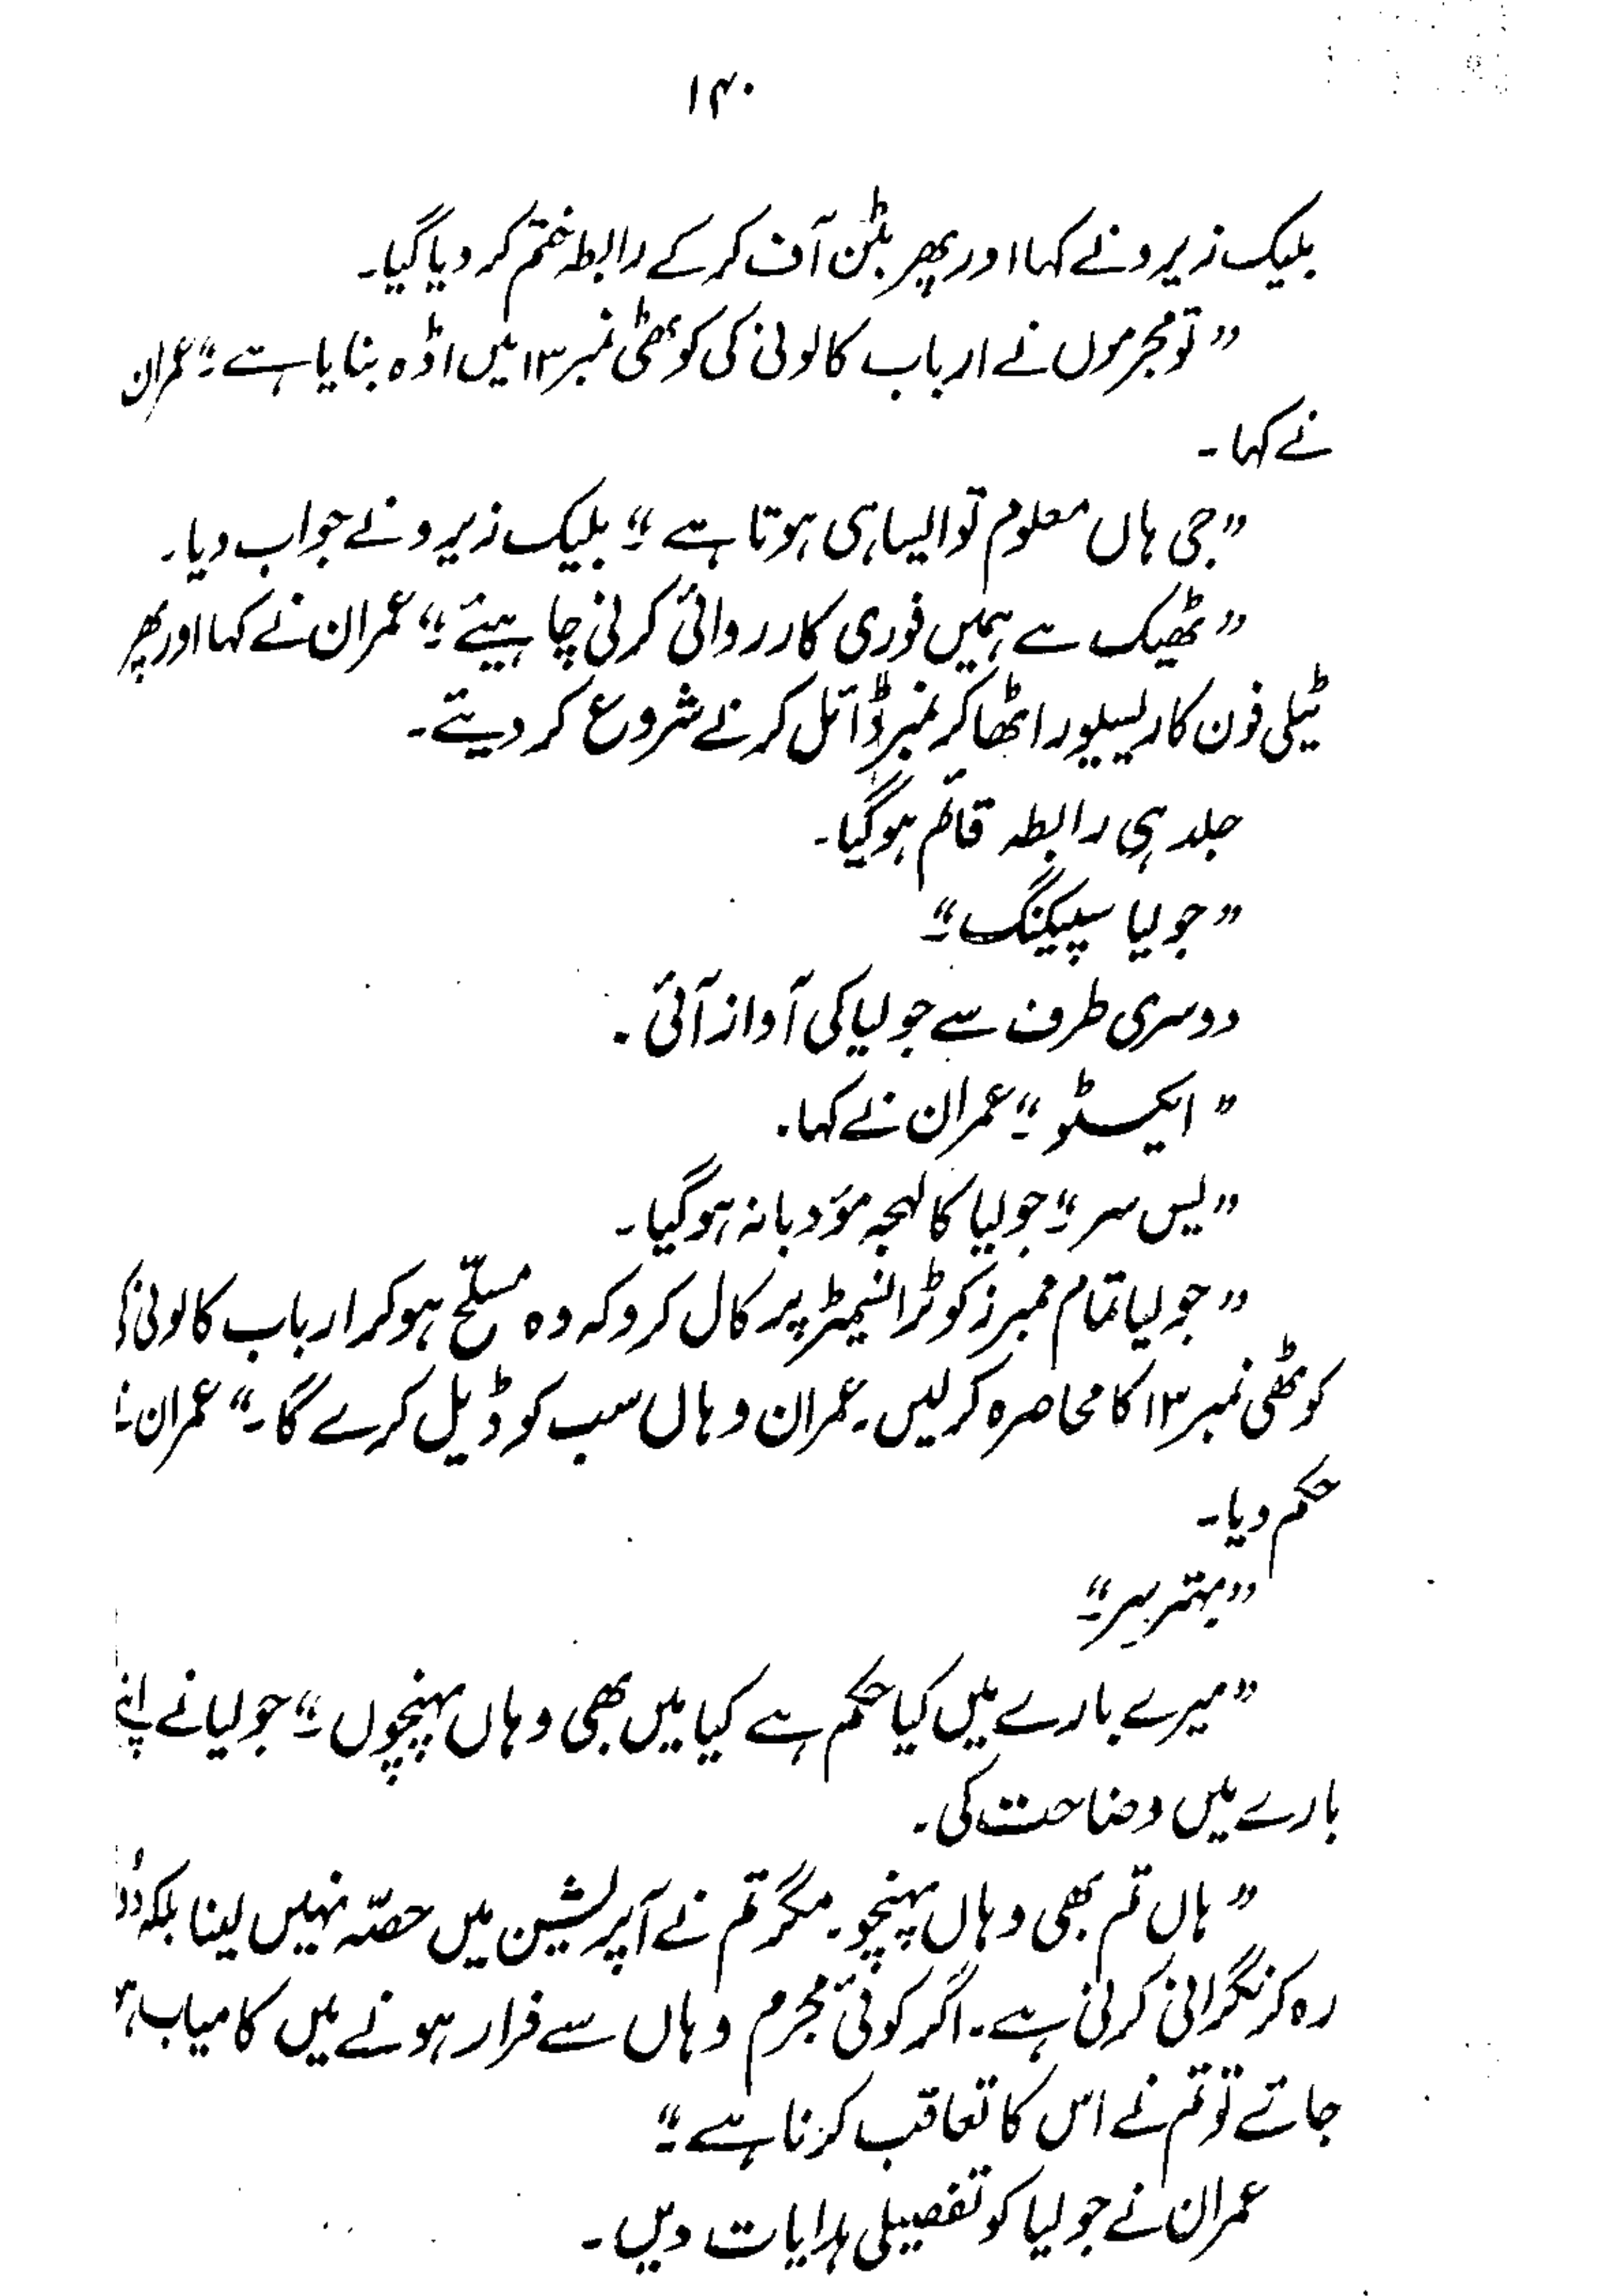 ۱۴۰
بلیک زیرو نے کہا اور پھر بٹن آف کر کے رابطہ ختم کر دیا گیا۔
”تو مجرموں نے ارباب کالونی کی کوٹھی نمبر ۱۳ میں اڈہ بنایا ہے۔“ عمران
نے کہا۔
”جی ہاں معلوم تو ایسا ہی ہوتا ہے۔“ بلیک زیرو نے جواب دیا۔
”ٹھیک ہے ہمیں فوری کارروائی کرنی چاہیئے۔“ عمران نے کہا اور پھر
ٹیلی فون کا ریسیور اٹھا کر نمبر ڈائل کرنے شروع کر دیتے۔
جلد ہی رابطہ قائم ہو گیا۔
”جولیا سپیکنگ۔“
دوسری طرف سے جولیا کی آواز آئی۔
”ایکسٹو۔“ عمران نے کہا۔
”یس سر۔“ جولیا کا لہجہ مؤدبانہ ہو گیا۔
”جولیا تمام ممبرز کو ٹرانسمیٹر پر کال کرو کہ وہ مسلّح ہو کر ارباب کالونی کی
کوٹھی نمبر ۱۳ کا محاصرہ کر لیں۔ عمران وہاں سب کو ڈیل کرے گا۔“ عمران نے
حکم دیا۔
”بہتر سر۔“
”میرے بارے میں کیا حکم ہے کیا میں بھی وہاں پہنچوں۔“ جولیا نے اپنے
بارے میں وضاحت کی۔
”ہاں تم بھی وہاں پہنچو۔ مگر تم نے آپریشن میں حصّہ نہیں لینا بلکہ
رہ کر نگرانی کرنی ہے۔ اگر کوئی مجرم وہاں سے فرار ہونے میں کامیاب ہو
جاتے تو تم نے اس کا تعاقب کرنا ہے۔“
عمران نے جولیا کو تفصیلی ہدایات دیں۔